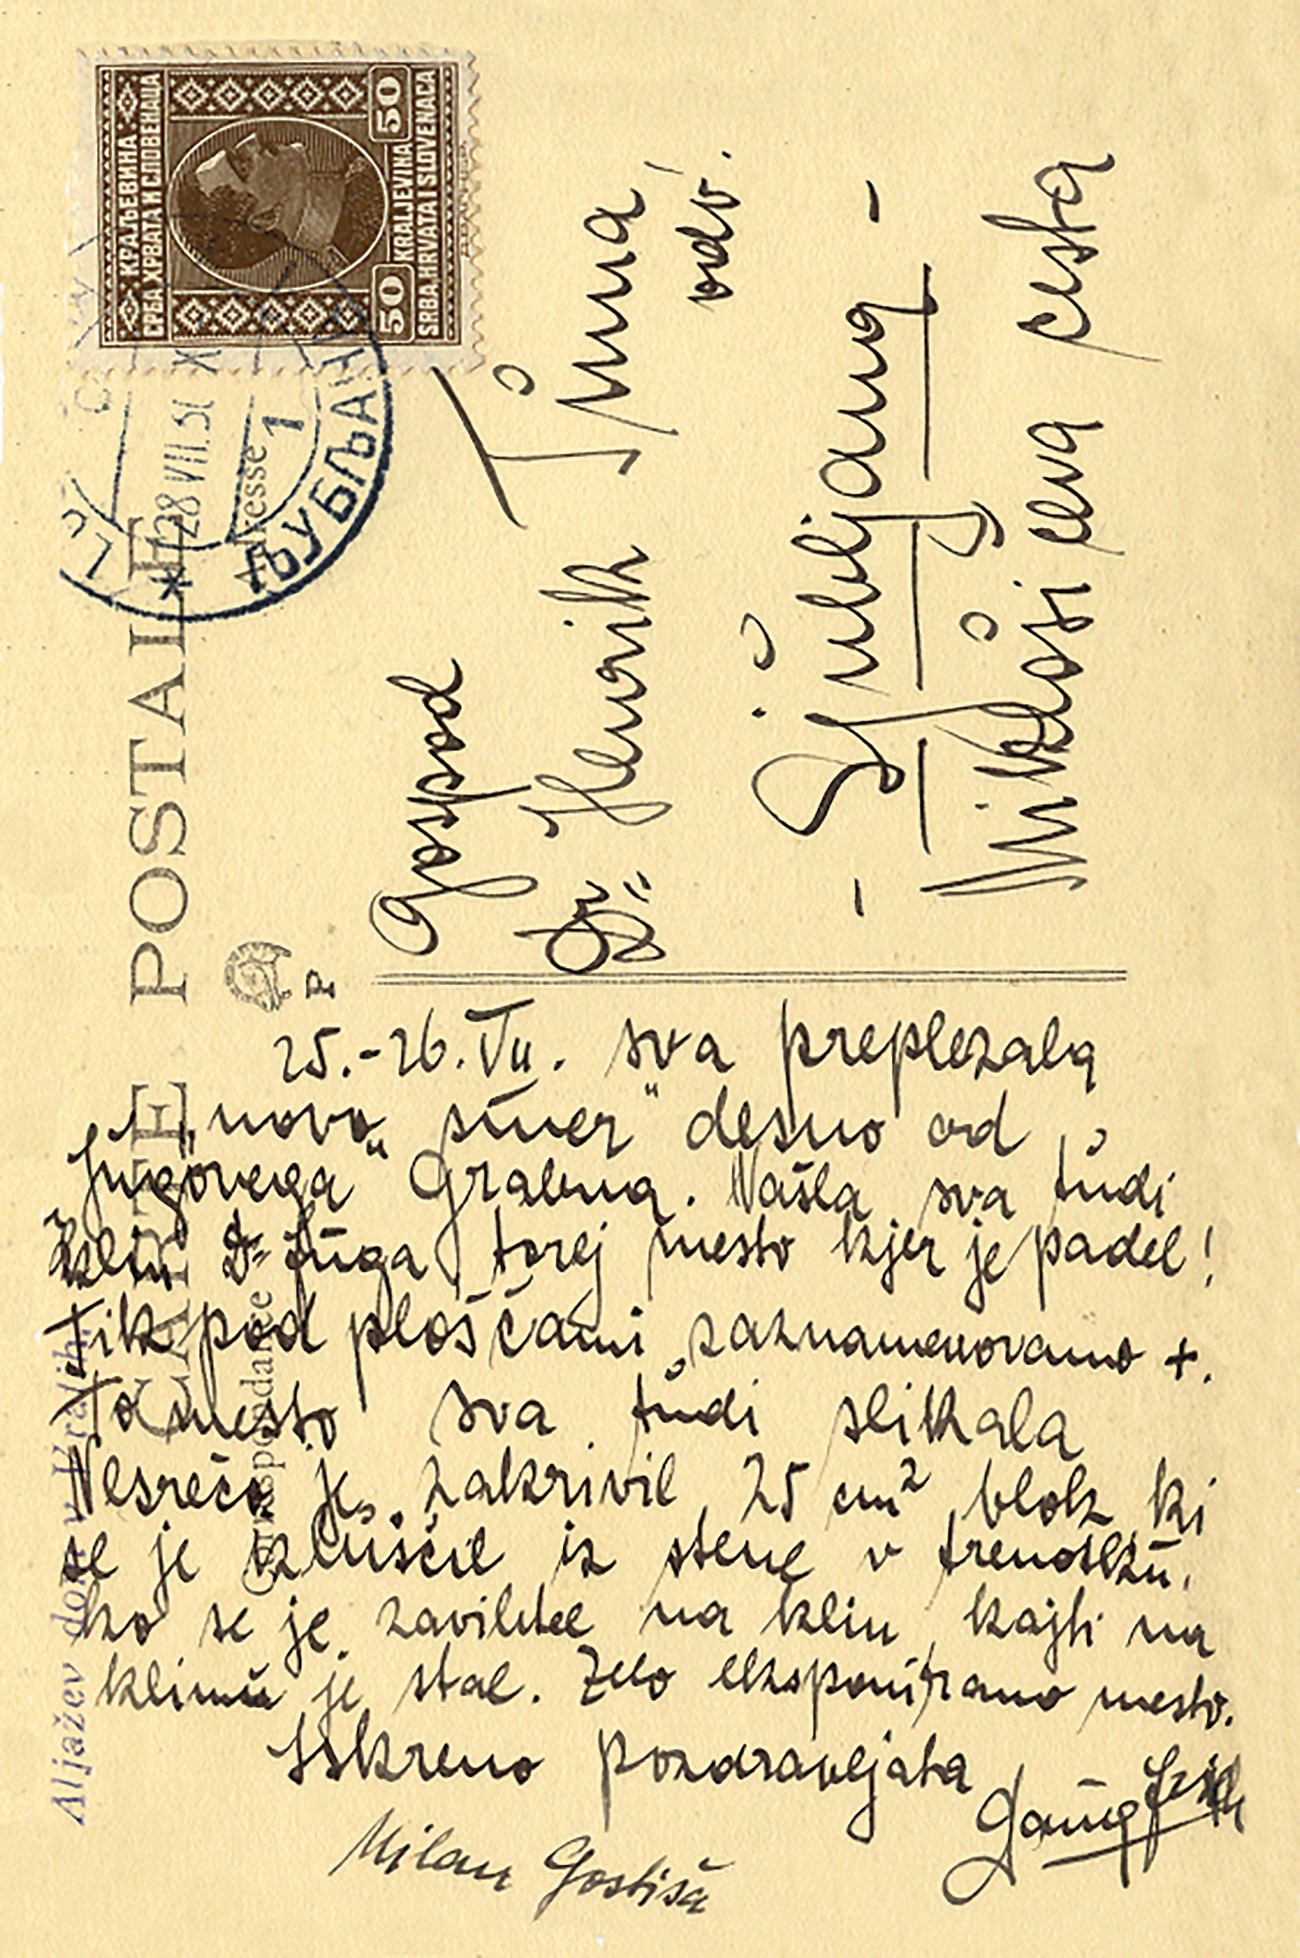 КРАЉЕВИНА
СРБА, ХРВАТА И СЛОВЕНАЦА
50 KRALJEVINA 50
SRBA, HRVATA I SLOVENACA
28 VIII. 31 X
1
ЉУБЉАНА
CARTE POSTALE
Correspondance
Adresse
P
Aljažev dom v Vratih
Gospod
Dr. Henrik Tuma
odv.
- Ljubljana -
Miklošičeva cesta
25.-26. VII. sva preplezala
"novo smer" desno od
Jugovega Grabna. Našla sva tudi
klin Dr Juga torej mesto kjer je padel!
Tik pod ploščami zaznamenovano +.
To mesto sva tudi slikala
Nesrečo je zakrivil 25 cm² blok ki
se je izluščil iz stene v trenotku,
ko se je zavihtel na klin, kajti na
klinu je stal. Zelo eksponirano mesto.
Iskreno pozdravljata
Milan Gostiša